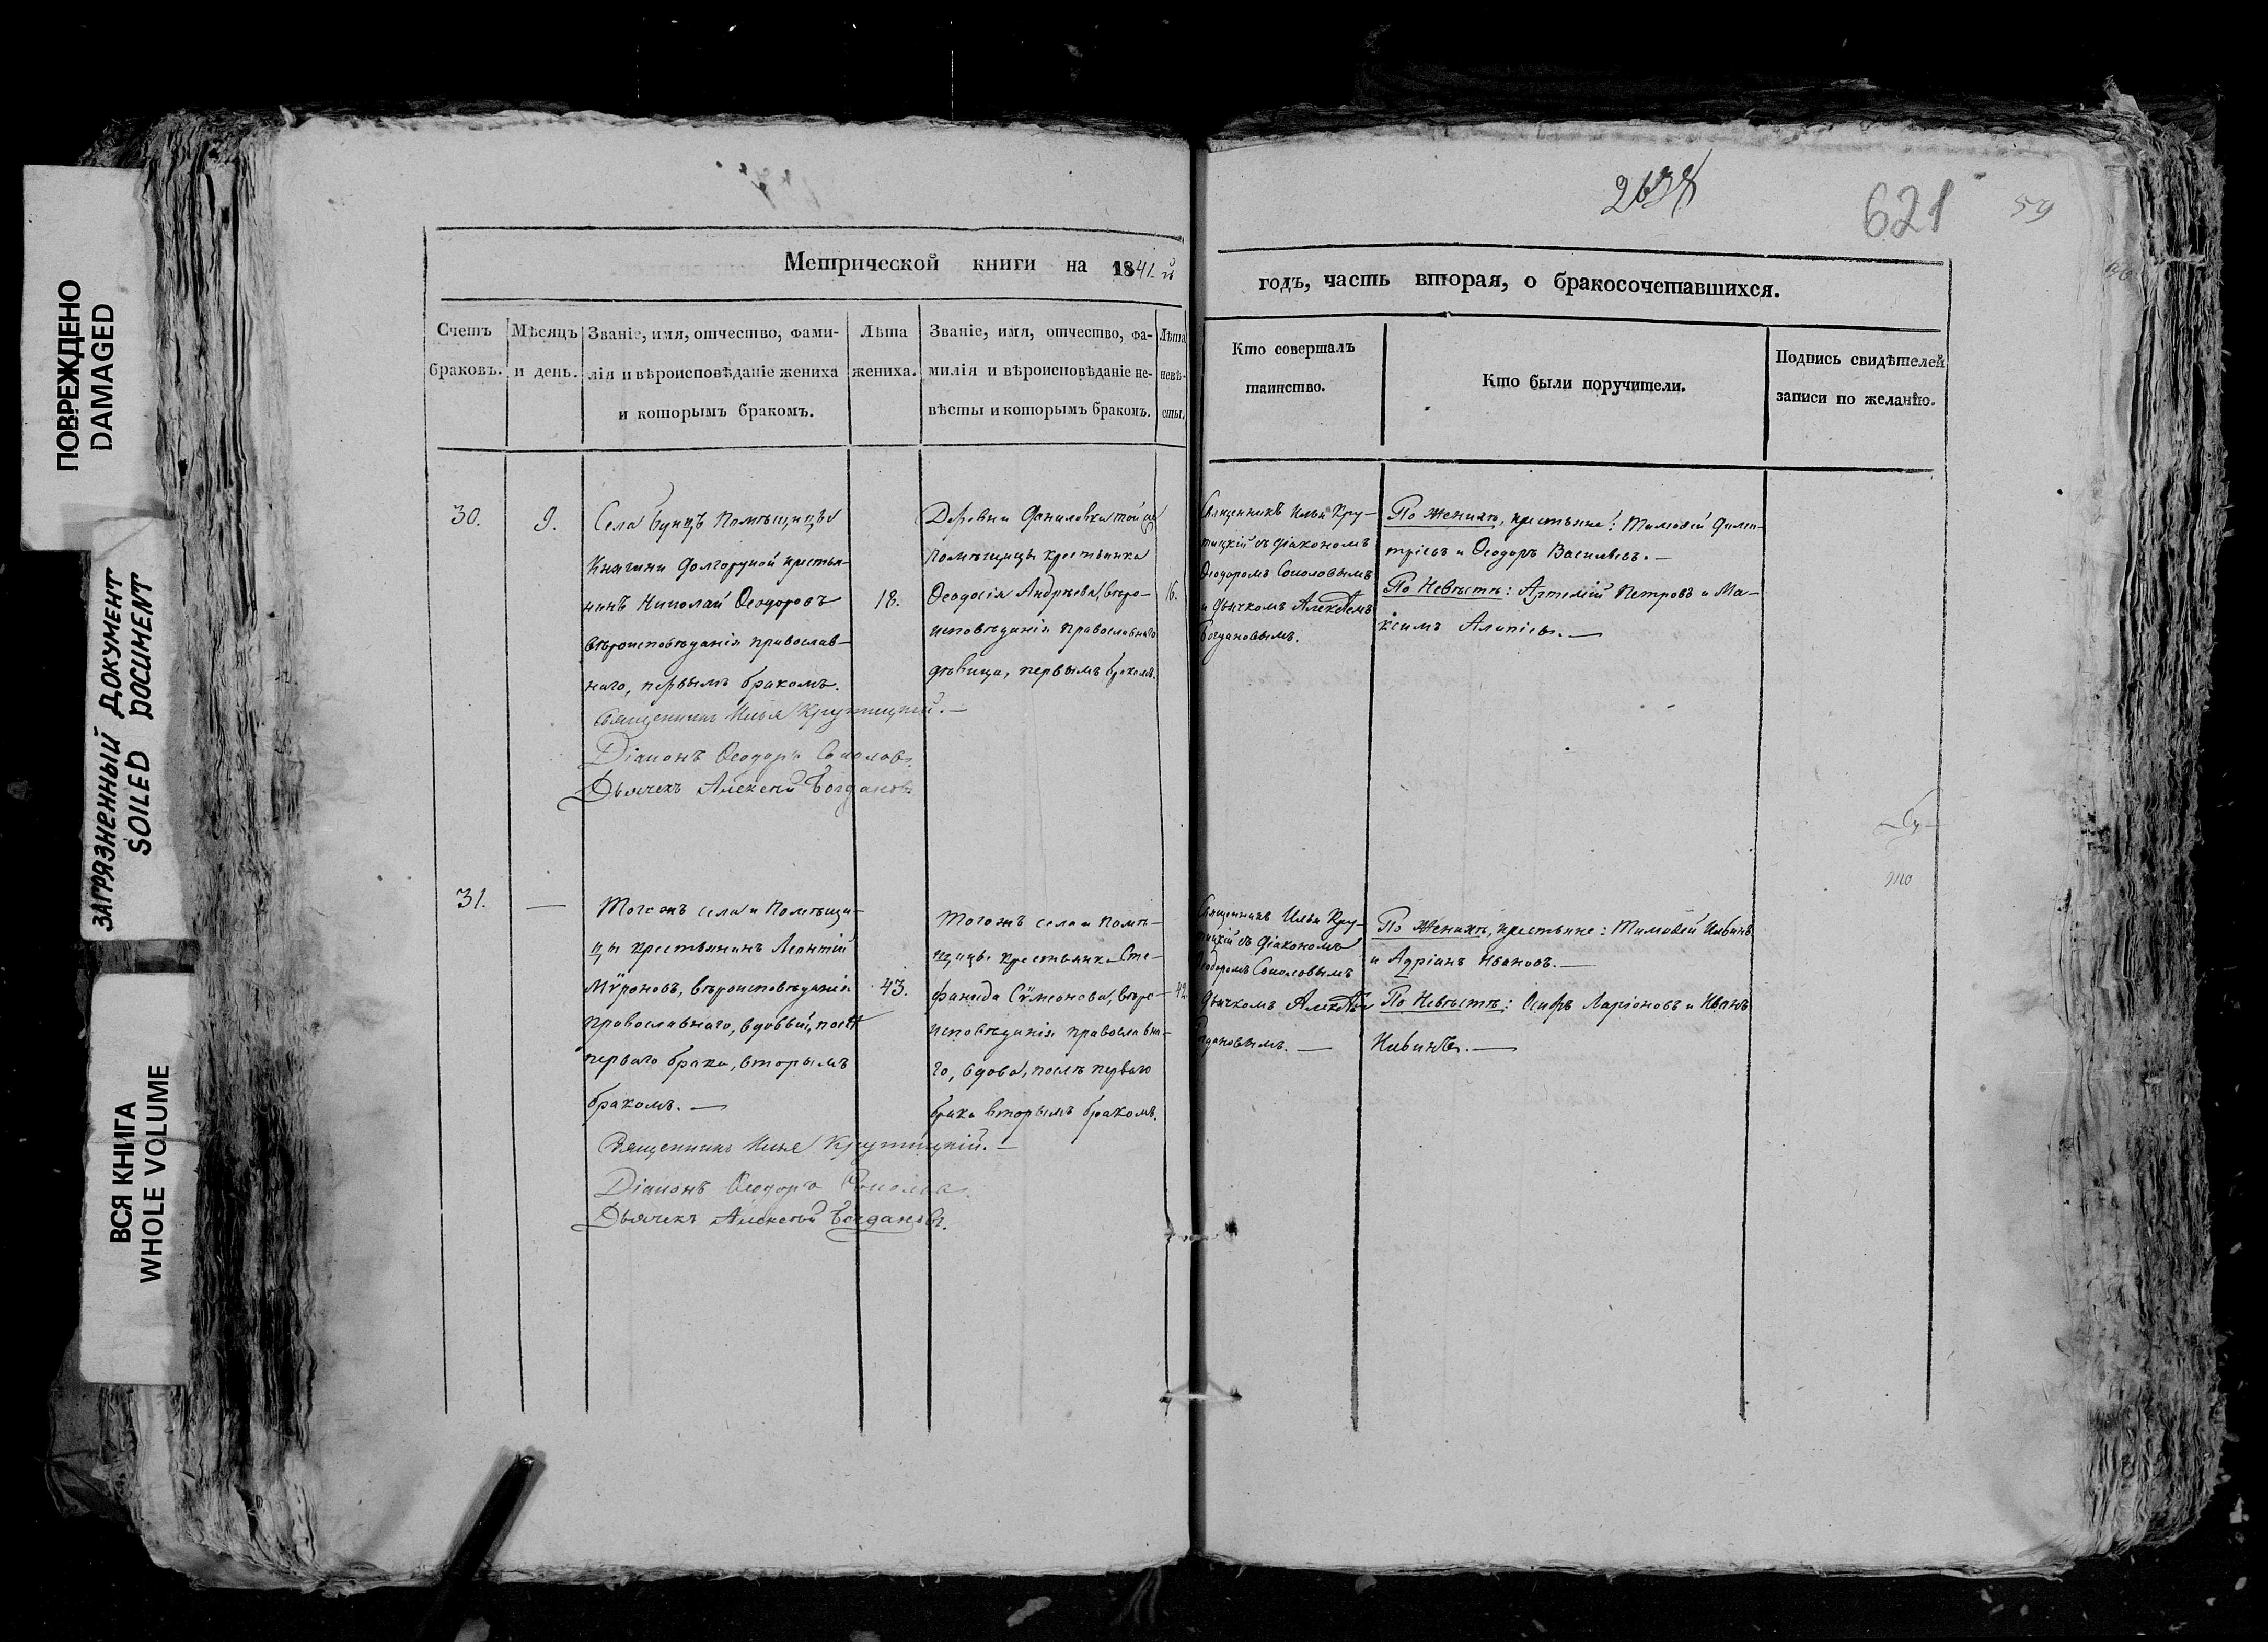 ПОВРЕЖДЕНО
DAMAGED
ЗАГРЯЗНЕННЫЙ ДОКУМЕНТ
SOILED DOCUMENT
ВСЯ КНИГА
WHOLE VOLUME
621
59
Метрической книги на 1841-й
годъ, часть вторая, о бракосочетавшихся.
Счетъ
браковъ.
Мѣсяцъ
и день.
Званіе, имя, отчество, фами-
лія и вѣроисповѣданіе жениха
и которымъ бракомъ.
Лѣта
жениха.
Званіе, имя, отчество, фа-
милія и вѣроисповѣданіе не-
вѣсты и которымъ бракомъ.
Лѣта
невѣ-
сты.
Кто совершалъ
таинство.
Кто были поручители.
Подпись свидѣтелей
записи по желанію.
30.
9.
Села Бунцъ Помѣщицы
Княгини Долгорукой крестья-
нинъ Николай Ѳеодоровъ
вѣроисповѣданія православ-
наго, первымъ бракомъ.
18.
Деревни Даниловки той же
помѣщицы крестьянка
Ѳеодосія Андрѣева, вѣро-
исповѣданія православнаго
дѣвица, первымъ бракомъ.
16.
Священникъ Илья Кру-
тицкій съ діакономъ
Ѳеодоромъ Соколовымъ
и дьячкомъ Алексѣемъ
Богдановымъ.
По Женихѣ, крестьяне: Тимоѳей Дими-
тріевъ и Ѳеодоръ Васильевъ. —
По Невѣстѣ: Артемій Петровъ и Ма-
ксимъ Алипіевъ. —
Священникъ Илья Крутицкій. —
Діаконъ Ѳеодоръ Соколовъ.
Дьячекъ Алексѣй Богдановъ.
31.
—
Тогожъ села и Помѣщи-
цы крестьянинъ Леонтій
Мѵроновъ, вѣроисповѣданія
православнаго, вдовый, послѣ
перваго брака, вторымъ
бракомъ. —
43.
Тогожъ села и помѣ-
щицы крестьянка Сте-
фанида Сѵмеонова, вѣро-
исповѣданія православна-
го, вдова, послѣ перваго
брака вторымъ бракомъ.
42.
Священникъ Илья Кру-
тицкій съ діакономъ
Ѳеодоромъ Соколовымъ
дьячкомъ Алексѣемъ
Богдановымъ. —
По Женихѣ, крестьяне: Тимоѳей Ивинъ
и Адріанъ Ивановъ. —
По Невѣстѣ: Осипъ Ларіоновъ и Иванъ
Священникъ Илья Крутицкій. —
Діаконъ Ѳеодоръ Соколовъ.
Дьячекъ Алексѣй Богдановъ.